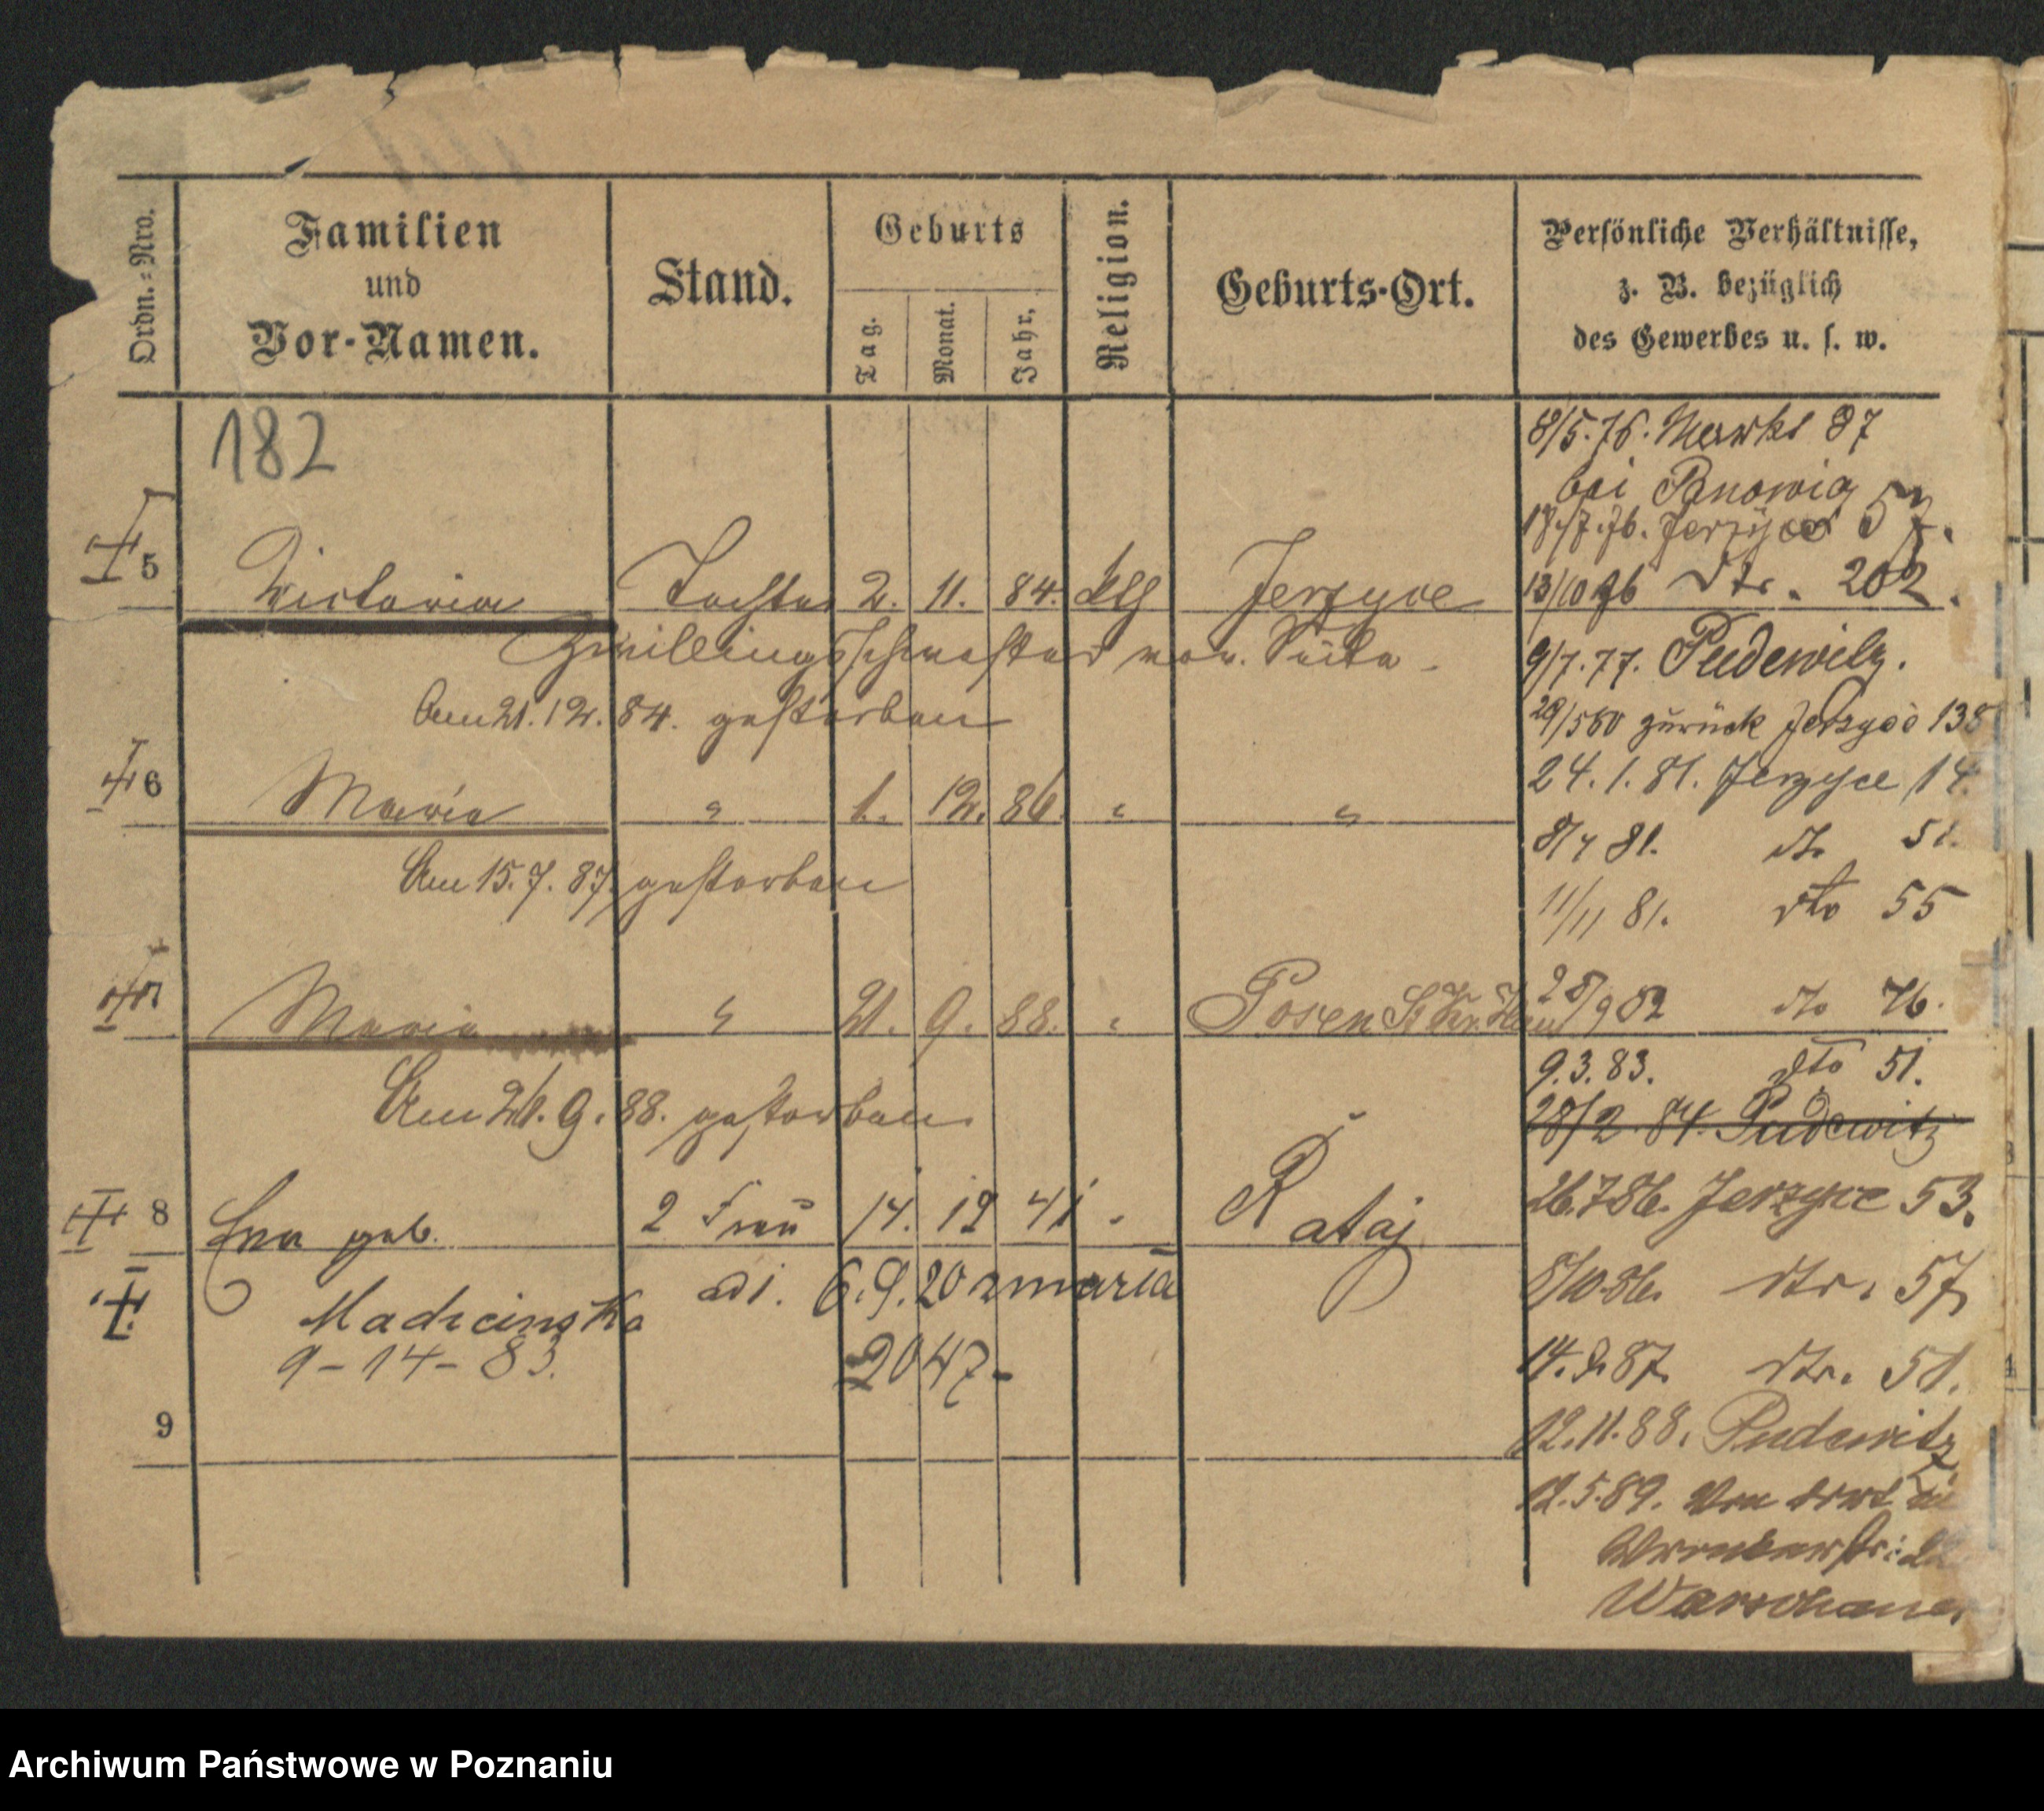 Ordn.=Nro.
Familien
und
Vor-Namen.
Stand.
Geburts
Tag.
Monat.
Jahr.
Religion.
Geburts-Ort.
Persönliche Verhältnisse,
z. B. bezüglich
des Gewerbes u. s. w.
182
5 Victoria Tochter 2. 11. 84. kth Jerzyce
Zwillingsschwester von
Am 21. 12. 84. gestorben
6 Maria " 1. 12. 86. " "
Am 15. 7. 87. gestorben
7 Maria " 21. 9. 88. " Posen St Kr. Haus
Am 21. 9. 88. gestorben
8 Eva geb. 2 Frau 14. 12 41 " Rataj
ad 1. 6. 9. 20 zmarła
9-14-83.
2047-
9
8/5. 76. Markt 87
bei
17/7. 76. Jerzyce 57.
13/10 76 dto. 202.
9/7. 77. Pudewitz.
29/5 80 zurück Jerzyce 138
24. 1. 81. Jerzyce 14
8/4 81. dto 51.
11/11 81. dto 55
28/9 82 dto 76.
9. 3. 83. dto 51.
28/2 84. Pudewitz
26. 7 86. Jerzyce 53.
8/10. 86. dto. 57
14. 9. 87. dto. 51.
12. 11. 88. Pudewitz
12. 5. 89. Von dort in
Warschauer
Archiwum Państwowe w Poznaniu